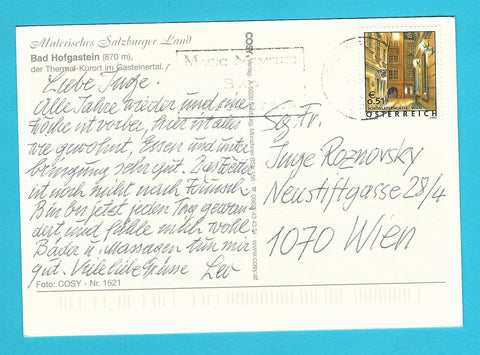 Malerisches Salzburger Land
Bad Hofgastein (870 m),
der Thermal-Kurort im Gasteinertal.
Liebe Inge.
Alle Jahre wieder und eine
Woche ist vorbei, hier ist alles
wie gewohnt, Essen und Unter
bringung sehr gut. Das Wetter
ist noch nicht nach Wunsch.
Bin bis jetzt jeden Tag gewan
dert und fühle mich wohl.
Bäder u. Massagen tun mir
gut. Viele liebe Grüsse Leo
Foto: COSY - Nr. 1521
MAGIC MOMENTS
€ 0.51
SCHÖNLATERNGASSE - WIEN
ÖSTERREICH
Sg. Fr.
Inge Roznovsky
Neustiftgasse 28/4
1070 Wien
www.cosy.at